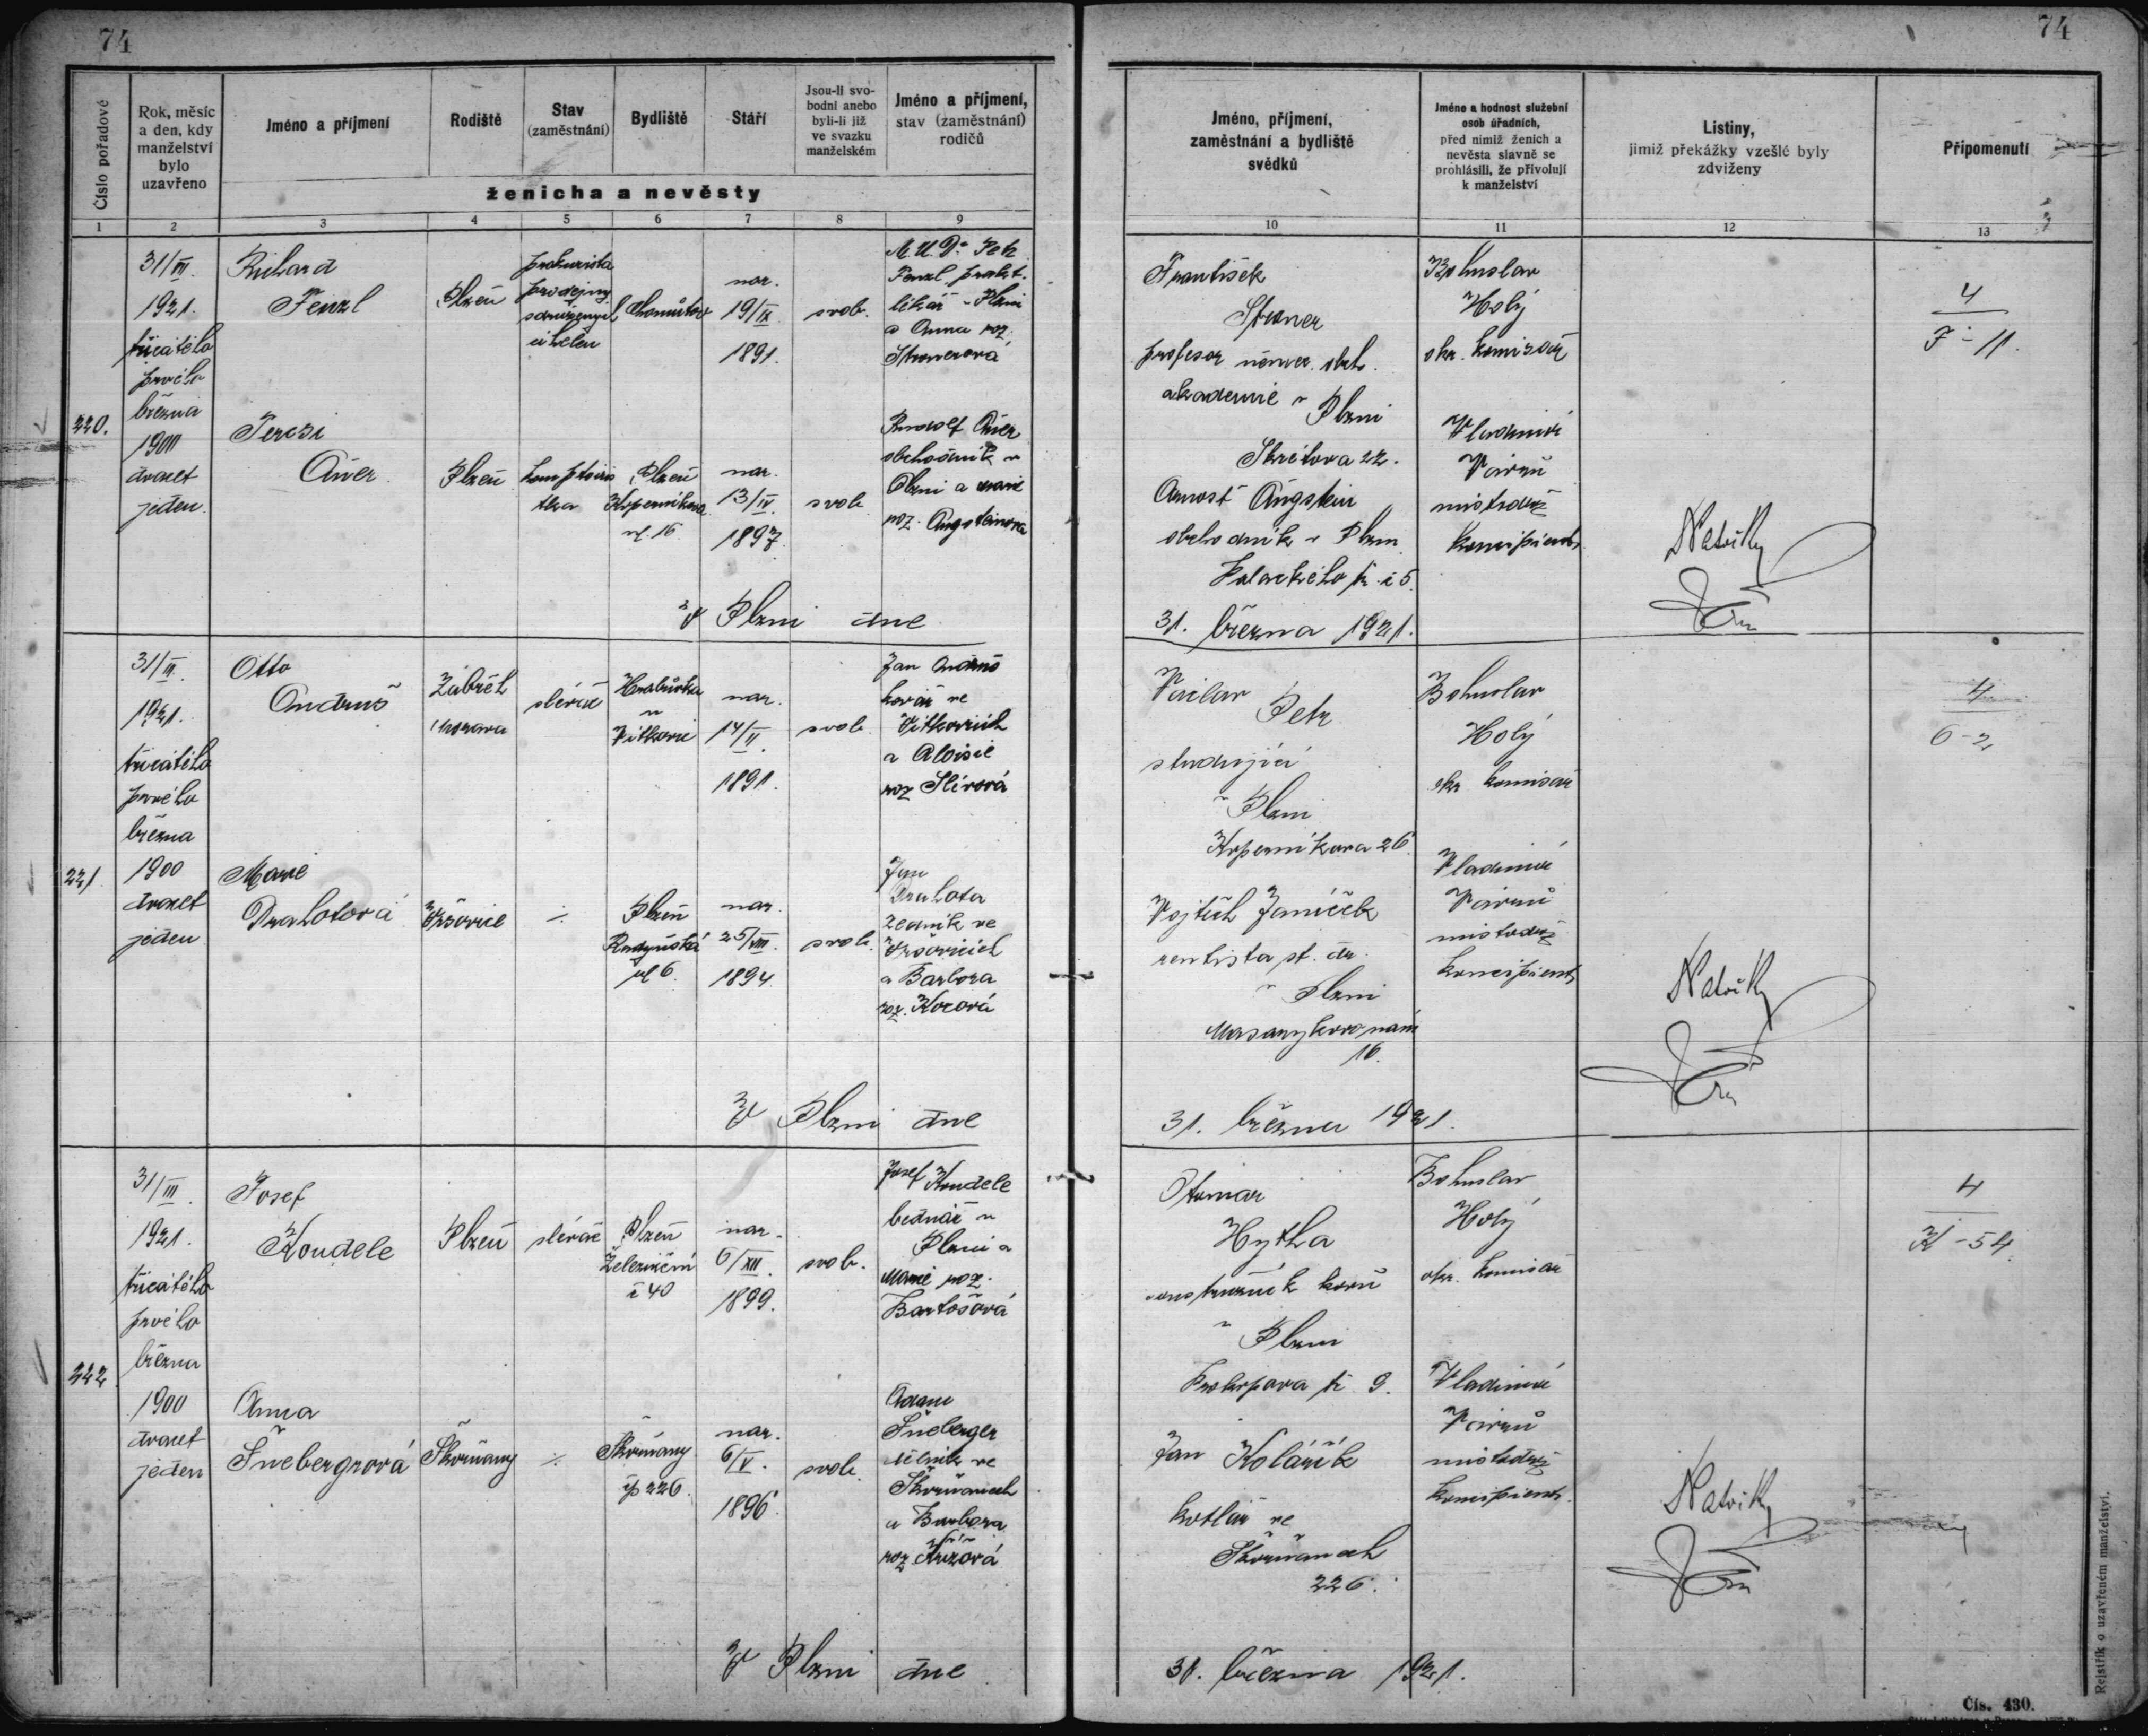 74
74
Číslo pořadové
Rok, měsíc
a den, kdy
manželství
bylo
uzavřeno
Jméno a příjmení
Rodiště
Stav
(zaměstnání)
Bydliště
Stáří
Jsou-li svo-
bodni anebo
byli-li již
ve svazku
manželském
Jméno a příjmení,
stav (zaměstnání)
rodičů
ženicha a nevěsty
Jméno, příjmení,
zaměstnání a bydliště
svědků
Jméno a hodnost služební
osob úřadních,
před nimiž ženich a
nevěsta slavně se
prohlásili, že přivolují
k manželství
Listiny,
jimiž překážky vzešlé byly
zdviženy
Připomenutí
1 2 3 4 5 6 7 8 9 10 11 12 13
220.
31/III.
1921.
třicátého
prvého
března
1900
dvacet
jeden.
Richard
Fenzl
Plzeň
prokurista
prodejny
sdružených
uhelen
Chomútov
nar.
19/IX.
1891.
svob.
M.U.Dr. Petr
Fenzl, prakt.
lékař v Plzni
a Anna roz.
Stronerová
Terezi
Auer
Plzeň
komptoiris
tka
Plzeň
Koperníkova
ul. 16.
nar.
13/IV.
1897.
svob.
Rudolf Auer
obchodník v
Plzni a Marie
roz. Angsteinova
František
Stroner
profesor němec. obch.
akademie v Plzni
Skrétova 22.
Arnošt Angstein
obchodník v Plzni
Palackého tř. č 5.
Bohuslav
Holý
okr. komisař
Vladimír
Vávrů
místodrž
koncipient
4
F - 11.
V Plzni dne
31. března 1921.
221.
31/III.
1921.
třicátého
prvého
března
1900
dvacet
jeden
Otto
Andruš
Zábřeh
Morava
slévač
Hrabůvka
u
Vítkovic
nar.
14/II.
1891.
svob.
Jan Andruš
kovář ve
Vítkovicích
a Aloisie
roz Slívová
Marie
Drahotová
Vršovice
÷
Plzeň
Radyňská
ul 6.
nar.
25/VIII.
1894.
svob.
Jan
Drahota
zedník ve
Vršovicích
a Barbora
roz. Kocová
Václav Petr
studující
v Plzni
Koperníkova 26.
Vojtěch Janíček
rentista st. dr.
v Plzni
Masarykovo nám
16.
Bohuslav
Holý
okr komisař
Vladimír
Vávrů
místodrž
koncipient
4
6 - 2
V Plzni dne
31. března 1921.
222
31/III.
1921.
třicátého
prvého
března
1900
dvacet
jeden
Josef
Koudele
Plzeň
slévač
Plzeň
Železniční
č 40
nar.
6/XII.
1899.
svob.
Josef Koudele
bednář v
Plzni a
Marie roz.
Bartošová
Anna
Šnebergrová
Skvrňany
÷
Skvrňany
čp 226.
nar.
6/V.
1896.
svob.
Adam
Šneberger
dělník ve
Skvrňanech
a Barbora
roz
Otomar
Hytha
v Plzni
Prokopova tř. 9.
Jan Kolářík
kotlář ve
Skvrňanech
226.
Bohuslav
Holý
okr. komisař
Vladimír
Vávrů
místodrž
koncipient.
4
K - 54
V Plzni dne
31. března 1921.
Rejstřík o uzavřeném manželství.
Čís. 430.